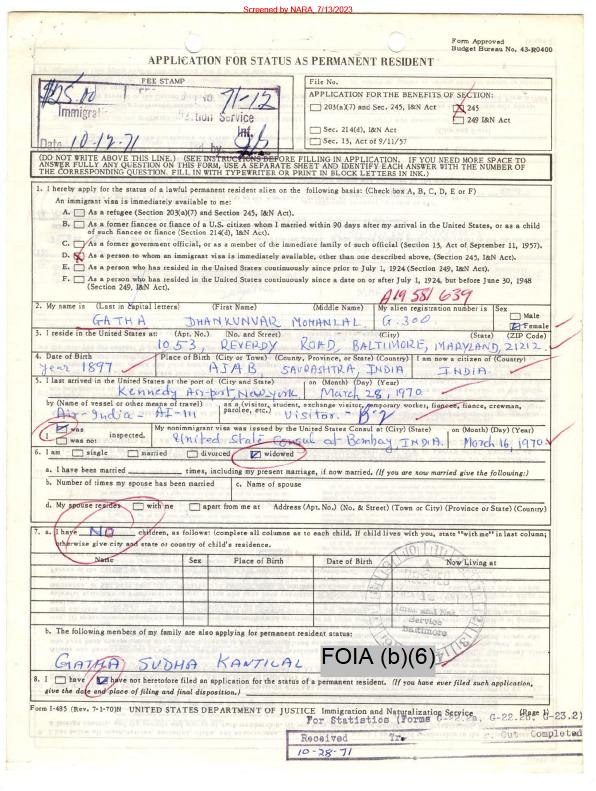 Screened by NARA, 7/13/2023
Form Approved
Budget Bureau No. 43-R0400
APPLICATION FOR STATUS AS PERMANENT RESIDENT
FEE STAMP
$25.00 71-12
Immigrati Service
Date 10-12-71
File No.
APPLICATION FOR THE BENEFITS OF SECTION:
203(a)(7) and Sec. 245, I&N Act 245
249 I&N Act
Sec. 214(d), I&N Act
Sec. 13, Act of 9/11/57
(DO NOT WRITE ABOVE THIS LINE.) (SEE INSTRUCTIONS BEFORE FILLING IN APPLICATION. IF YOU NEED MORE SPACE TO
ANSWER FULLY ANY QUESTION ON THIS FORM, USE A SEPARATE SHEET AND IDENTIFY EACH ANSWER WITH THE NUMBER OF
THE CORRESPONDING QUESTION. FILL IN WITH TYPEWRITER OR PRINT IN BLOCK LETTERS IN INK.)
1. I hereby apply for the status of a lawful permanent resident alien on the following basis: (Check box A, B, C, D, E or F)
An immigrant visa is immediately available to me:
A. As a refugee (Section 203(a)(7) and Section 245, I&N Act).
B. As a former fiancee or fiance of a U.S. citizen whom I married within 90 days after my arrival in the United States, or as a child
of such fiancee or fiance (Section 214(d), I&N Act).
C. As a former government official, or as a member of the immediate family of such official (Section 13, Act of September 11, 1957).
D. As a person to whom an immigrant visa is immediately available, other than one described above, (Section 245, I&N Act).
E. As a person who has resided in the United States continuously since prior to July 1, 1924 (Section 249, I&N Act).
F. As a person who has resided in the United States continuously since a date on or after July 1, 1924, but before June 30, 1948
(Section 249, I&N Act).
A19 581 639
2. My name is (Last in Capital letters) (First Name) (Middle Name) My alien registration number is Sex
GATHA DHANKUNVAR MOHANLAL G.300 Male
Female
3. I reside in the United States at: (Apt. No.) (No. and Street) (City) (State) (ZIP Code)
1053, REVERDY ROAD, BALTIMORE, MARYLAND, 21212.
4. Date of Birth Place of Birth (City or Town) (County, Province, or State) (Country) I am now a citizen of (Country)
year 1897 AJAB SAURASHTRA, INDIA INDIA.
5. I last arrived in the United States at the port of (City and State) on (Month) (Day) (Year)
Kennedy Air-port, New york. March 28, 1970
by (Name of vessel or other means of travel) as a (visitor, student, exchange visitor, temporary worker, fiancee, fiance, crewman,
parolee, etc.)
Air-India - AI-111 Visitor. - B-2
I was My nonimmigrant visa was issued by the United States Consul at (City) (State) on (Month) (Day) (Year)
was not: inspected. United State Consul at Bombay, INDIA. March 16, 1970
6. I am single married divorced widowed
a. I have been married times, including my present marriage, if now married. (If you are now married give the following:)
b. Number of times my spouse has been married c. Name of spouse
d. My spouse resides with me apart from me at Address (Apt. No.) (No. & Street) (Town or City) (Province or State) (Country)
7. a. I have NO children, as follows: (complete all columns as to each child. If child lives with you, state "with me" in last column;
otherwise give city and state or country of child's residence.
Name Sex Place of Birth Date of Birth Now Living at
RECEIVED
Imm. and Nat.
Service
Baltimore
b. The following members of my family are also applying for permanent resident status:
GATHA SUDHA KANTILAL FOIA (b)(6)
8. I have have not heretofore filed an application for the status of a permanent resident. (If you have ever filed such application,
give the date and place of filing and final disposition.)
Form I-485 (Rev. 7-1-70)N UNITED STATES DEPARTMENT OF JUSTICE Immigration and Naturalization Service (Page 1)
For Statistics (Forms G-22.2a, G-22.2b, G-23.2)
Received Tr. Out Completed
10-28-71